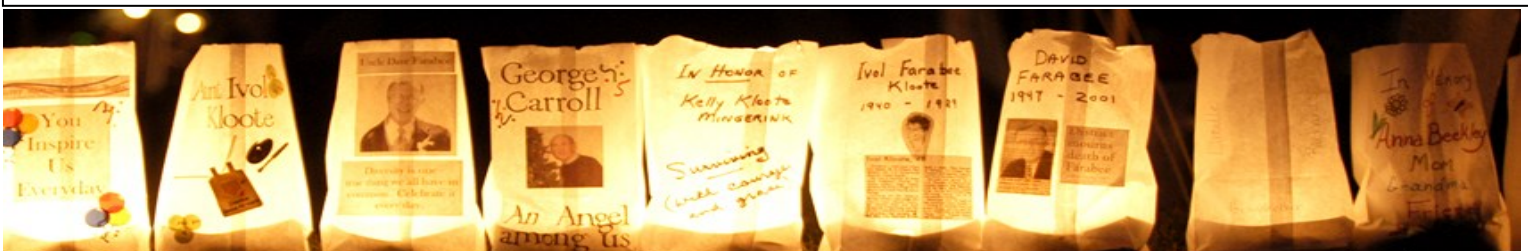 You
Inspire
Us
Everyday
Ant Ivol
Kloote
Uncle Dave Farabee
Diversity is one
true thing we all have in
common. Celebrate it
everyday.
George
Carroll
An Angel
among us
IN HONOR OF
Kelly Kloote
MINGERINK
Surviving
(with courage
and grace)
Ivol Farabee
Kloote
1940 - 1989
DAVID
FARABEE
1947 - 2001
District
mourns
death of
Farabee
In Memory
of
Anna Beekley
Mom
Grandma